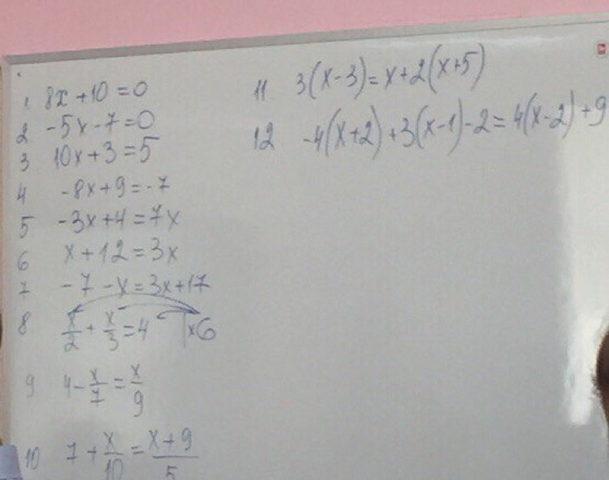 1 8x + 10 = 0
2 -5x - 7 = 0
3 10x + 3 = 5
4 -8x + 9 = -7
5 -3x + 4 = 7x
6 x + 12 = 3x
7 -7 - x = 3x + 17
8 x/2 + x/3 = 4 |x6
9 4 - x/7 = x/9
10 7 + x/10 = x+9/5
11 3(x-3) = x + 2(x+5)
12 -4(x+2) + 3(x-1) - 2 = 4(x-2) + 9